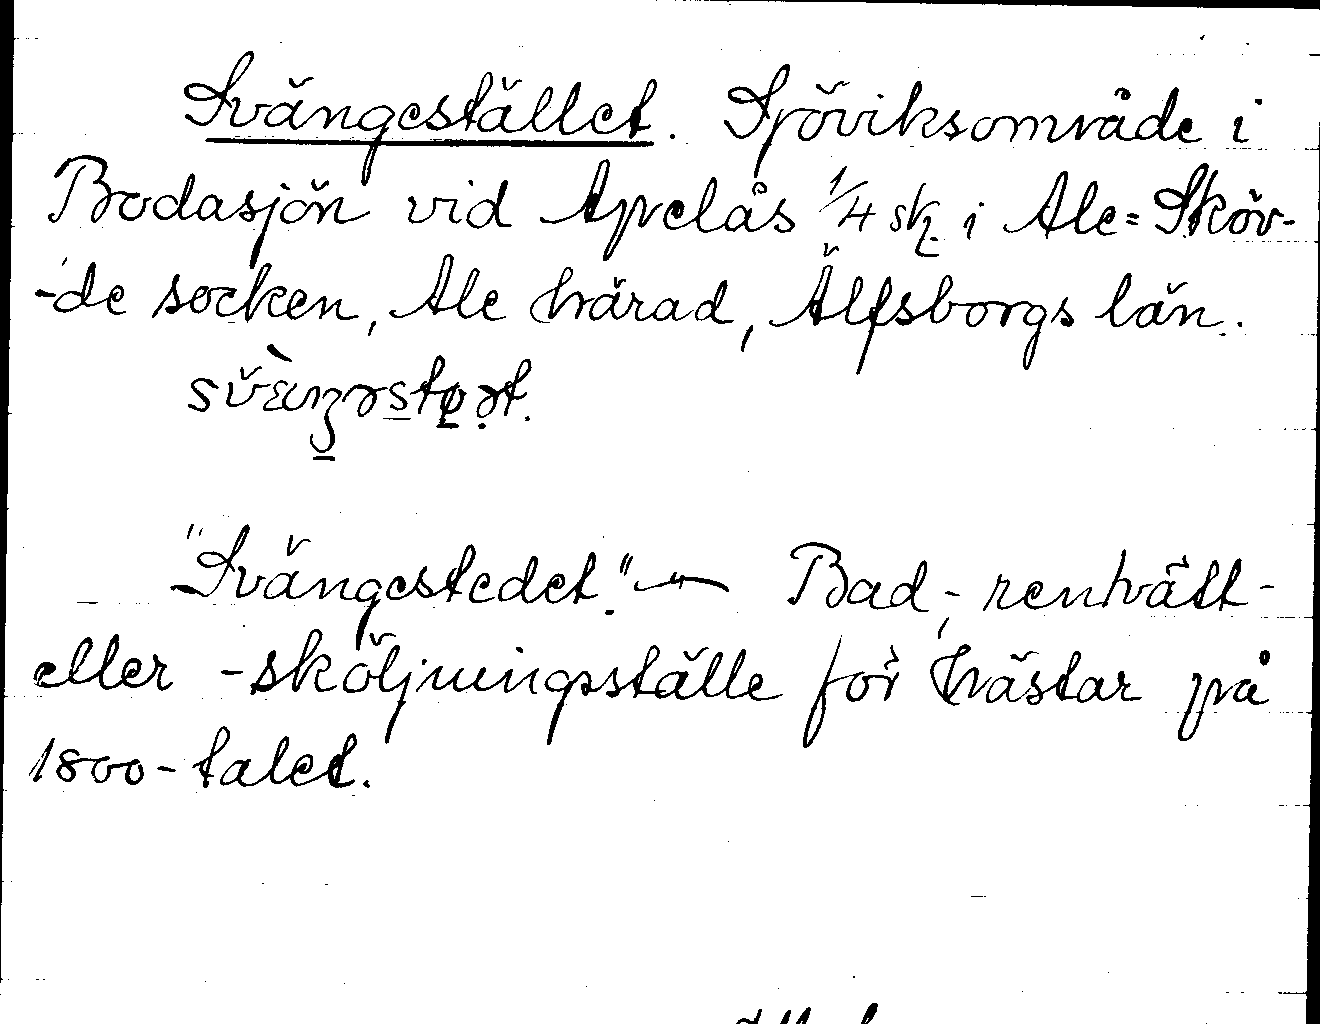 Svängestället. Sjöviksområde i
Bodasjön vid Apelås 1/4 sk. i Ale=Sköv-
-de socken, Ale härad, Älfsborgs län.
"Svängestedet." — Bad-, rentvätt-
eller -sköljningsställe för hästar på
1800-talet.